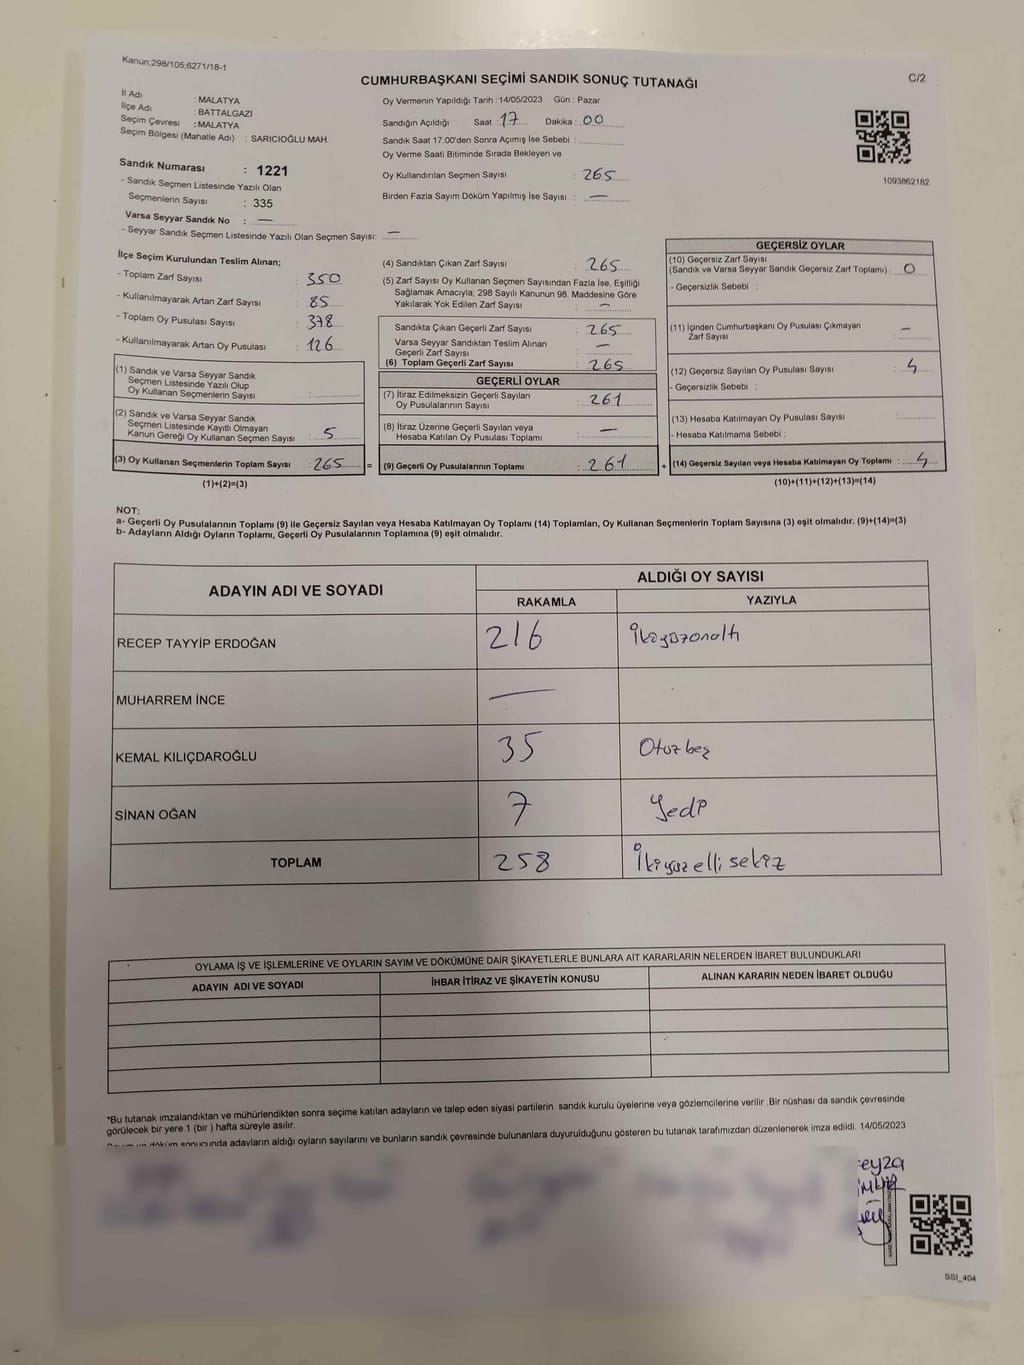 Kanun;298/105;6271/18-1
CUMHURBAŞKANI SEÇİMİ SANDIK SONUÇ TUTANAĞI
C/2
İl Adı : MALATYA
İlçe Adı : BATTALGAZİ
Seçim Çevresi : MALATYA
Seçim Bölgesi (Mahalle Adı) : SARICIOĞLU MAH.
Sandık Numarası : 1221
- Sandık Seçmen Listesinde Yazılı Olan
Seçmenlerin Sayısı : 335
Varsa Seyyar Sandık No : —
- Seyyar Sandık Seçmen Listesinde Yazılı Olan Seçmen Sayısı: —
Oy Vermenin Yapıldığı Tarih : 14/05/2023 Gün : Pazar
Sandığın Açıldığı Saat : 17 Dakika : 00
Sandık Saat 17:00'den Sonra Açımış İse Sebebi :
Oy Verme Saati Bitiminde Sırada Bekleyen ve
Oy Kullandırılan Seçmen Sayısı : 265
Birden Fazla Sayım Döküm Yapılmış İse Sayısı : —
1093862182
İlçe Seçim Kurulundan Teslim Alınan;
- Toplam Zarf Sayısı : 350
- Kullanılmayarak Artan Zarf Sayısı : 85
- Toplam Oy Pusulası Sayısı : 378
- Kullanılmayarak Artan Oy Pusulası : 126
(1) Sandık ve Varsa Seyyar Sandık
Seçmen Listesinde Yazılı Olup
Oy Kullanan Seçmenlerin Sayısı :
(2) Sandık ve Varsa Seyyar Sandık
Seçmen Listesinde Kayıtlı Olmayan
Kanun Gereği Oy Kullanan Seçmen Sayısı : 5
(3) Oy Kullanan Seçmenlerin Toplam Sayısı : 265 =
(1)+(2)=(3)
(4) Sandıktan Çıkan Zarf Sayısı : 265
(5) Zarf Sayısı Oy Kullanan Seçmen Sayısından Fazla İse, Eşitliği
Sağlamak Amacıyla; 298 Sayılı Kanunun 98. Maddesine Göre
Yakılarak Yok Edilen Zarf Sayısı : —
Sandıkta Çıkan Geçerli Zarf Sayısı : 265
Varsa Seyyar Sandıktan Teslim Alınan
Geçerli Zarf Sayısı : —
(6) Toplam Geçerli Zarf Sayısı : 265
GEÇERLİ OYLAR
(7) İtiraz Edilmeksizin Geçerli Sayılan
Oy Pusulalarının Sayısı : 261
(8) İtiraz Üzerine Geçerli Sayılan veya
Hesaba Katılan Oy Pusulası Toplamı : —
(9) Geçerli Oy Pusulalarının Toplamı : 261 +
GEÇERSİZ OYLAR
(10) Geçersiz Zarf Sayısı
(Sandık ve Varsa Seyyar Sandık Geçersiz Zarf Toplamı) : 0
- Geçersizlik Sebebi :
(11) İçinden Cumhurbaşkanı Oy Pusulası Çıkmayan
Zarf Sayısı : —
(12) Geçersiz Sayılan Oy Pusulası Sayısı : 4
- Geçersizlik Sebebi :
(13) Hesaba Katılmayan Oy Pusulası Sayısı :
- Hesaba Katılmama Sebebi :
(14) Geçersiz Sayılan veya Hesaba Katılmayan Oy Toplamı : 4
(10)+(11)+(12)+(13)=(14)
NOT:
a- Geçerli Oy Pusulalarının Toplamı (9) ile Geçersiz Sayılan veya Hesaba Katılmayan Oy Toplamı (14) Toplamları, Oy Kullanan Seçmenlerin Toplam Sayısına (3) eşit olmalıdır. (9)+(14)=(3)
b- Adayların Aldığı Oyların Toplamı, Geçerli Oy Pusulalarının Toplamına (9) eşit olmalıdır.
ADAYIN ADI VE SOYADI
ALDIĞI OY SAYISI
RAKAMLA YAZIYLA
RECEP TAYYİP ERDOĞAN 216 İkiyüzonaltı
MUHARREM İNCE —
KEMAL KILIÇDAROĞLU 35 Otuzbeş
SİNAN OĞAN 7 Yedi
TOPLAM 258 İkiyüzellisekiz
OYLAMA İŞ VE İŞLEMLERİNE VE OYLARIN SAYIM VE DÖKÜMÜNE DAİR ŞİKAYETLERLE BUNLARA AİT KARARLARIN NELERDEN İBARET BULUNDUKLARI
ADAYIN ADI VE SOYADI İHBAR İTİRAZ VE ŞİKAYETİN KONUSU ALINAN KARARIN NEDEN İBARET OLDUĞU
*Bu tutanak imzalandıktan ve mühürlendikten sonra seçime katılan adayların ve talep eden siyasi partilerin sandık kurulu üyelerine veya gözlemcilerine verilir .Bir nüshası da sandık çevresinde
görülecek bir yere 1 (bir ) hafta süreyle asılır.
döküm sonucunda adayların aldığı oyların sayılarını ve bunların sandık çevresinde bulunanlara duyurulduğunu gösteren bu tutanak tarafımızdan düzenlenerek imza edildi. 14/05/2023
eyza
BSI_404